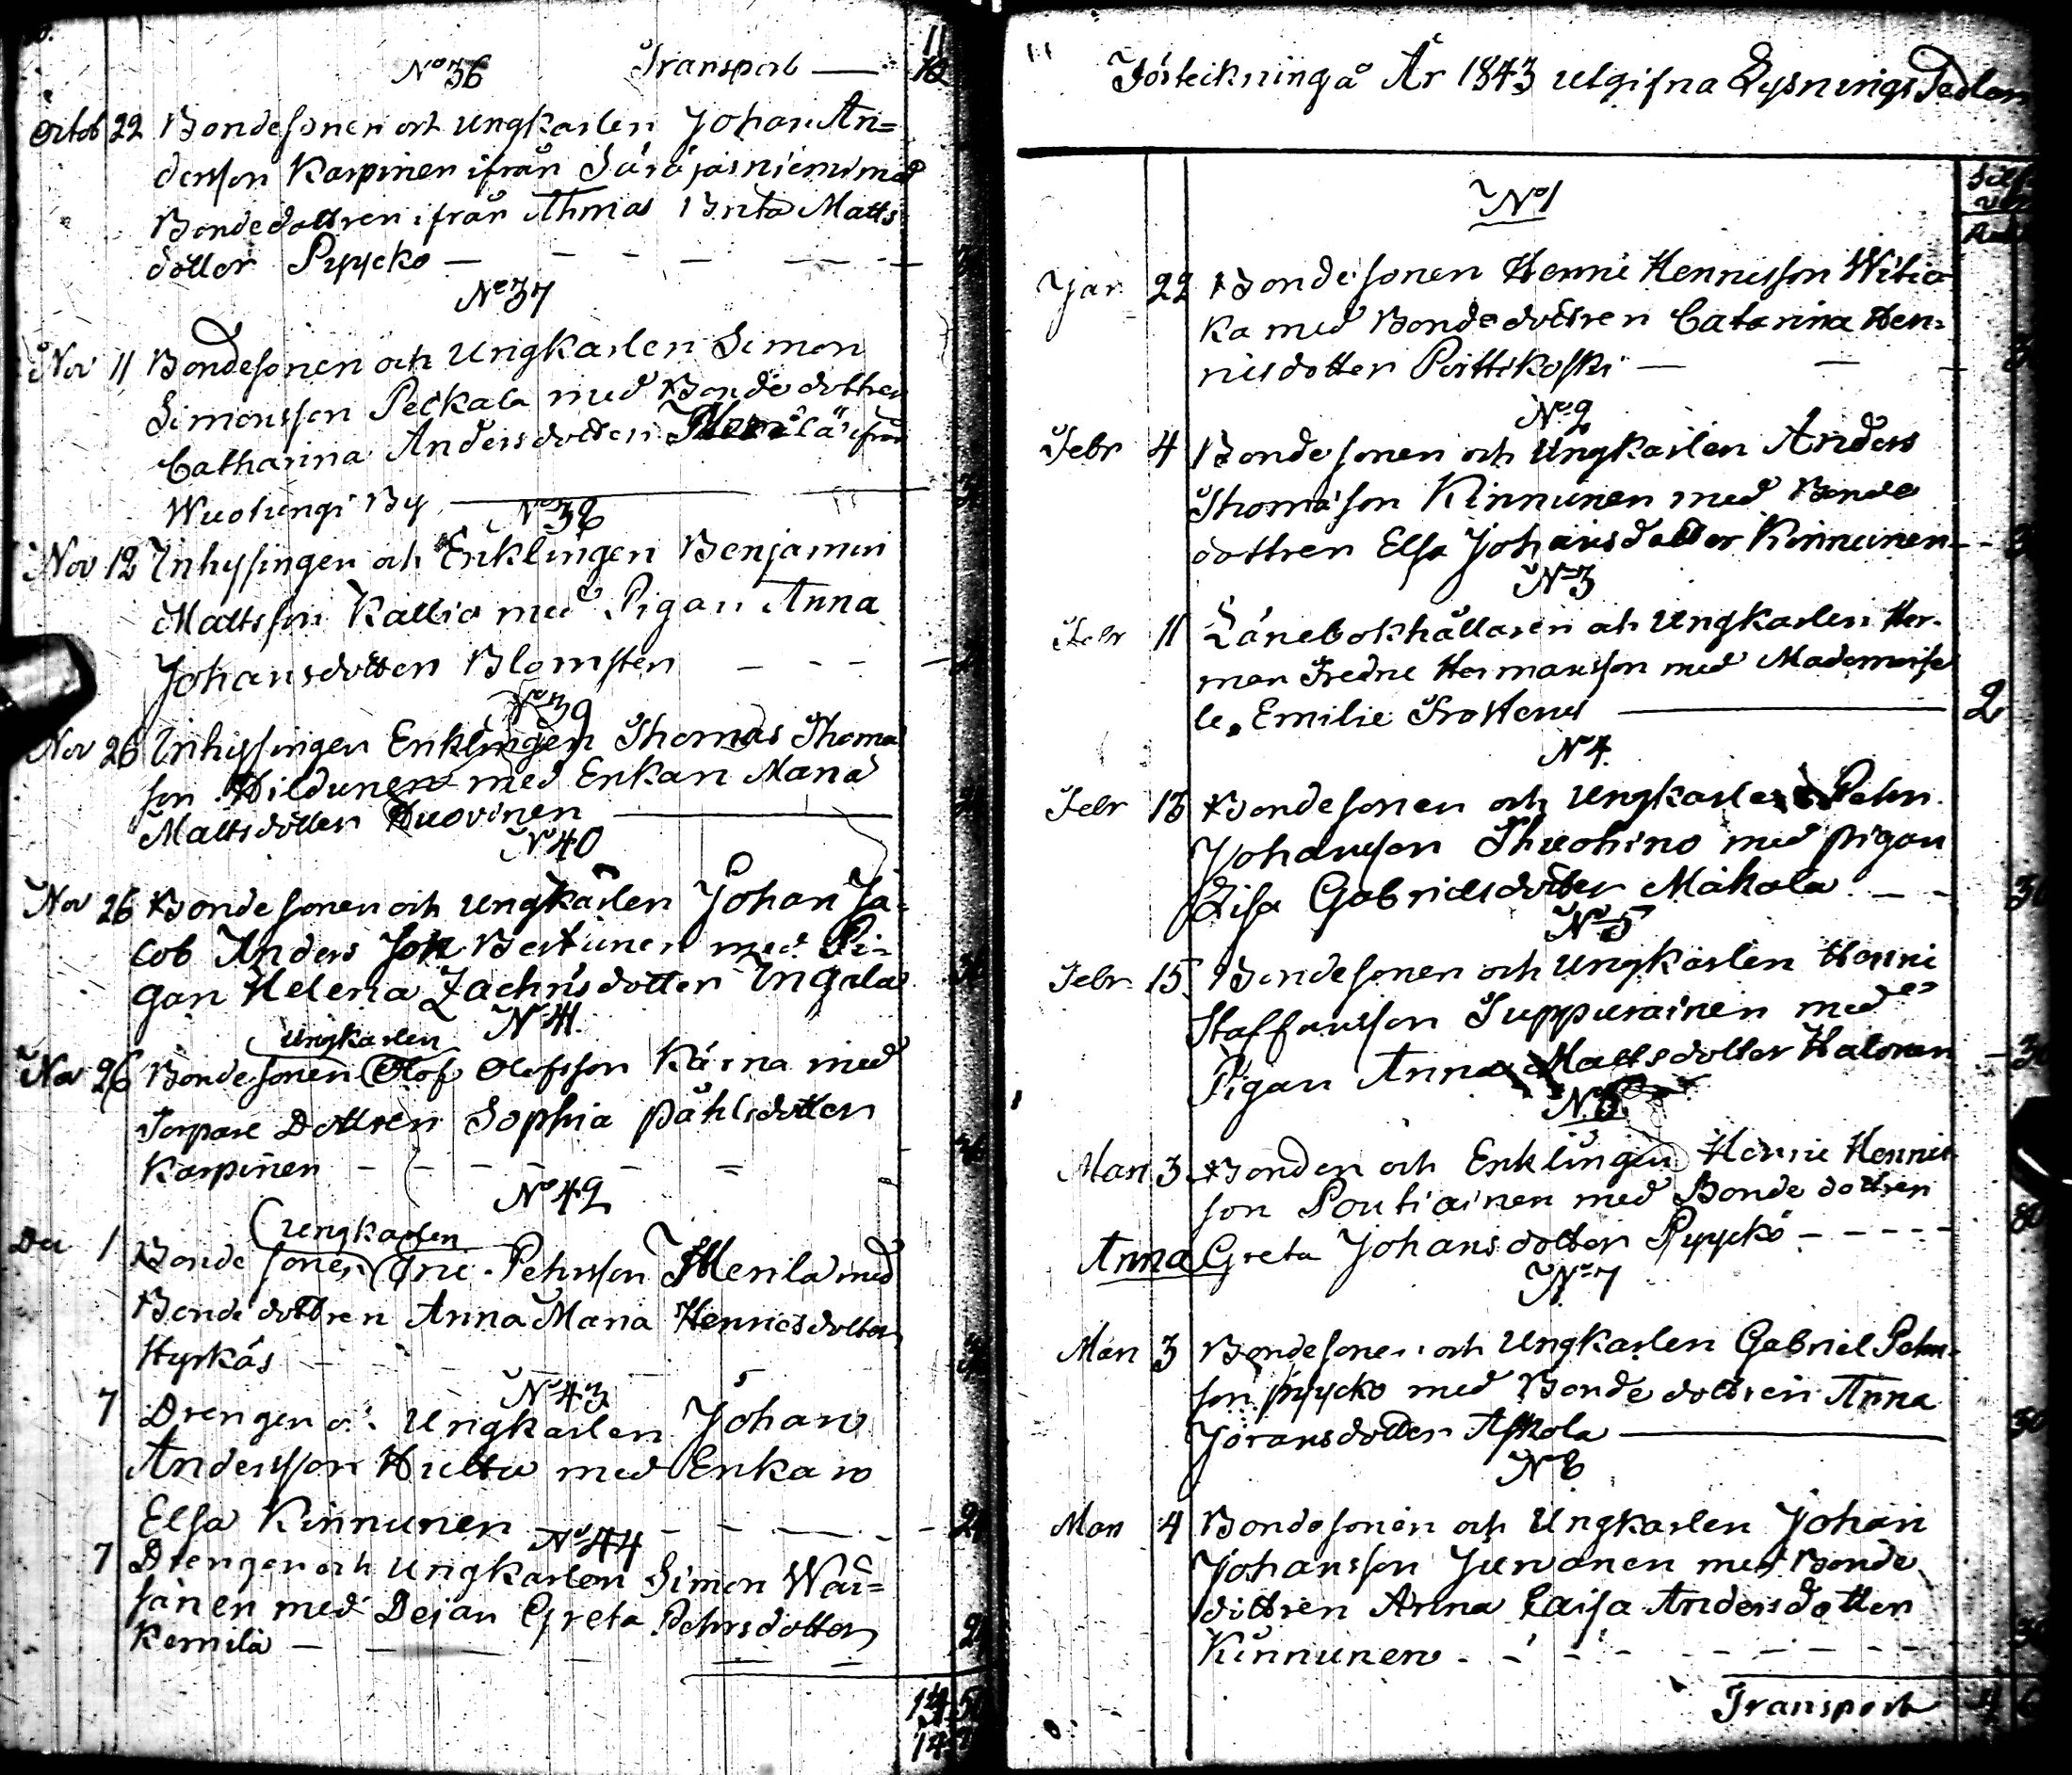 No 36 Transport — 11
Octob 22 Bondesonen och Ungkarlen Johan An=
dersson Karpinen ifrån Säräjäsniemi med
Bondedottren ifrån Ahmas Brita Matts
dotter Pyycko — — — — — —
No 37
Nov 11 Bondesonen och Ungkarlen Simon
Simonsson Peckala med Bondedottren
Catharina Andersdotter ifrån
Wuolungi By
No 38
Nov 12 Inhysingen och Enklingen Benjamin
Mattsson Kallio med Pigan Anna
Johansdotter Blomsten — — — —
No 39
Nov 26 Inhysingen Enklingen Thomas Thoma
son Hildunen med Enkan Maria
Mattsdotter Huovinen
No 40
Nov 26 Bondesonen och Ungkarlen Johan Ja=
cob Anders Joh Bertunen med Pi=
gan Helena Zachrisdotter Ingala
No 41
Ungkarlen
Nov 26 Bondesonen Olof Olofsson Kärna med
Torpare Dottren Sophia Påhlsdotter
Karpinen — — — — — =
No 42
Ungkarlen
Dec 1 Bonde sonen Eric Pehrsson Merila med
Bonde dottren Anna Maria Henricsdotter
Hyrkäs
No 43
7 Drengen o. Ungkarlen Johan
Andersson Hultu med Enkan
Elsa Kinnunen — — — — 24
No 44
7 Drengen och Ungkarlen Simon Wäi=
sänen med Dejan Greta Pehrsdotter
Kemilä — — — — 24
14 50
11 Förteckning å År 1843 utgifna Lysnings Sedlar
No 1
Jan 22 Bondesonen Henric Henricsson Witio
ka med Bondedottren Catarina Hen=
ricsdotter Poittikoski — — —
No 2
Febr 4 Bondesonen och Ungkarlen Anders
Thomasson Kinnunen med Bonde
dottren Elsa Johansdotter Kinnunen — —
No 3
Febr 11 Länebokhållaren och Ungkarlen Her=
man Fredric Hermansson med Mademoise
le. Emilie Frosterus — 2
No 4.
Febr 13 Bondesonen och Ungkarlen Pehr
Johansson Thuohino med pigan
Lisa Gabrielsdotter Mäkälä — — 30
No 5
Febr 15 Bondesonen och Ungkarlen Henric
Staffansson Suppurainen med
Pigan Anna Mattsdotter Halonen — 30
No 6
Mars 3 Bonden och Enklingen Henric Henrics
son Poutiainen med Bonde dottren
Anna Greta Johansdotter Pyyckö — — — — 80
No 7
Mars 3 Bondesonen och Ungkarlen Gabriel Pehrs
son pyycko med Bonde dottren Anna
Joransdotter Askola — 30
No 8
Mars 4 Bondesonen och Ungkarlen Johan
Johansson Juvanen med Bonde
dottren Anna Caisa Andersdotter
Kinnunen — — — — — — — — 30
Transport